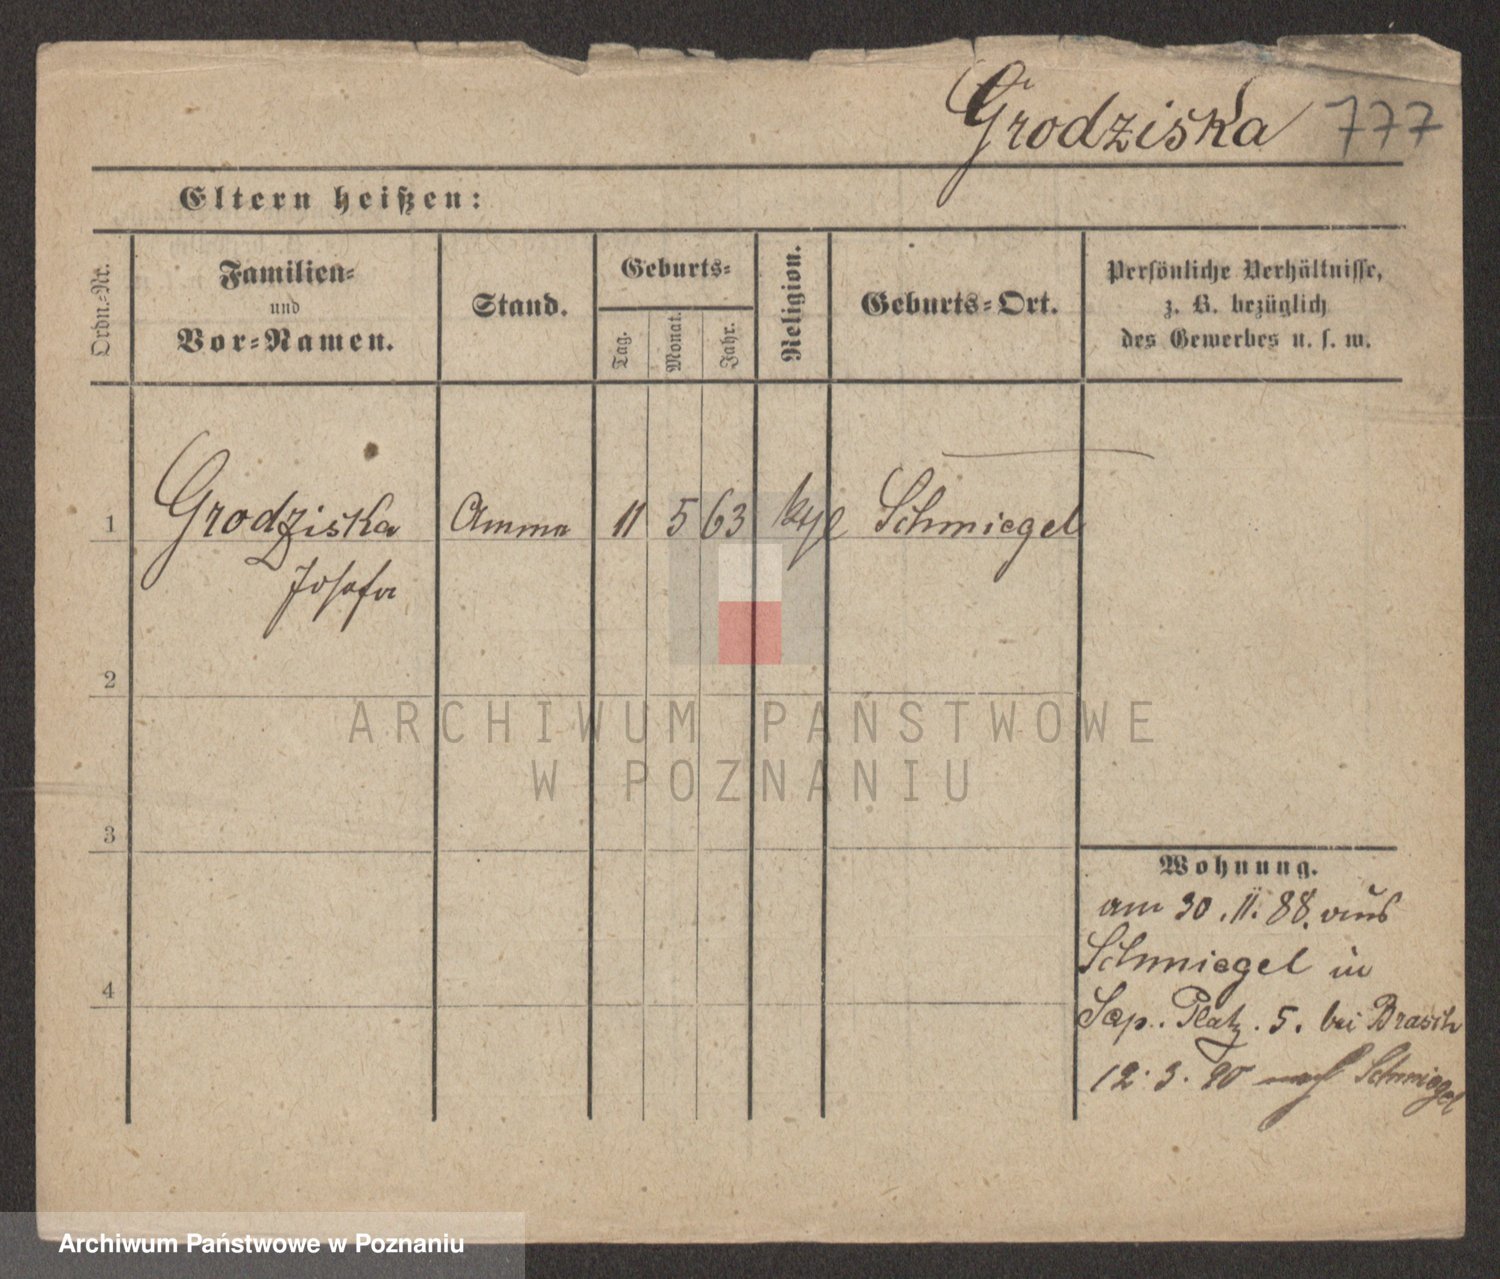 Grodziska 777
Eltern heißen:
Ordn.-Nr.
Familien-
und
Vor-Namen.
Stand.
Geburts-
Tag.
Monat.
Jahr.
Religion.
Geburts-Ort.
Persönliche Verhältnisse,
z. B. bezüglich
des Gewerbes u. s. w.
1 Grodziska Amme 11 5 63 ktl Schmiegel
Josefa
2
3
4
Wohnung.
am 30.11.88. aus
Schmiegel in
Sap. Platz. 5. bei Brasch
12.3.90 nach Schmiegel
ARCHIWUM PAŃSTWOWE
W POZNANIU
Archiwum Państwowe w Poznaniu